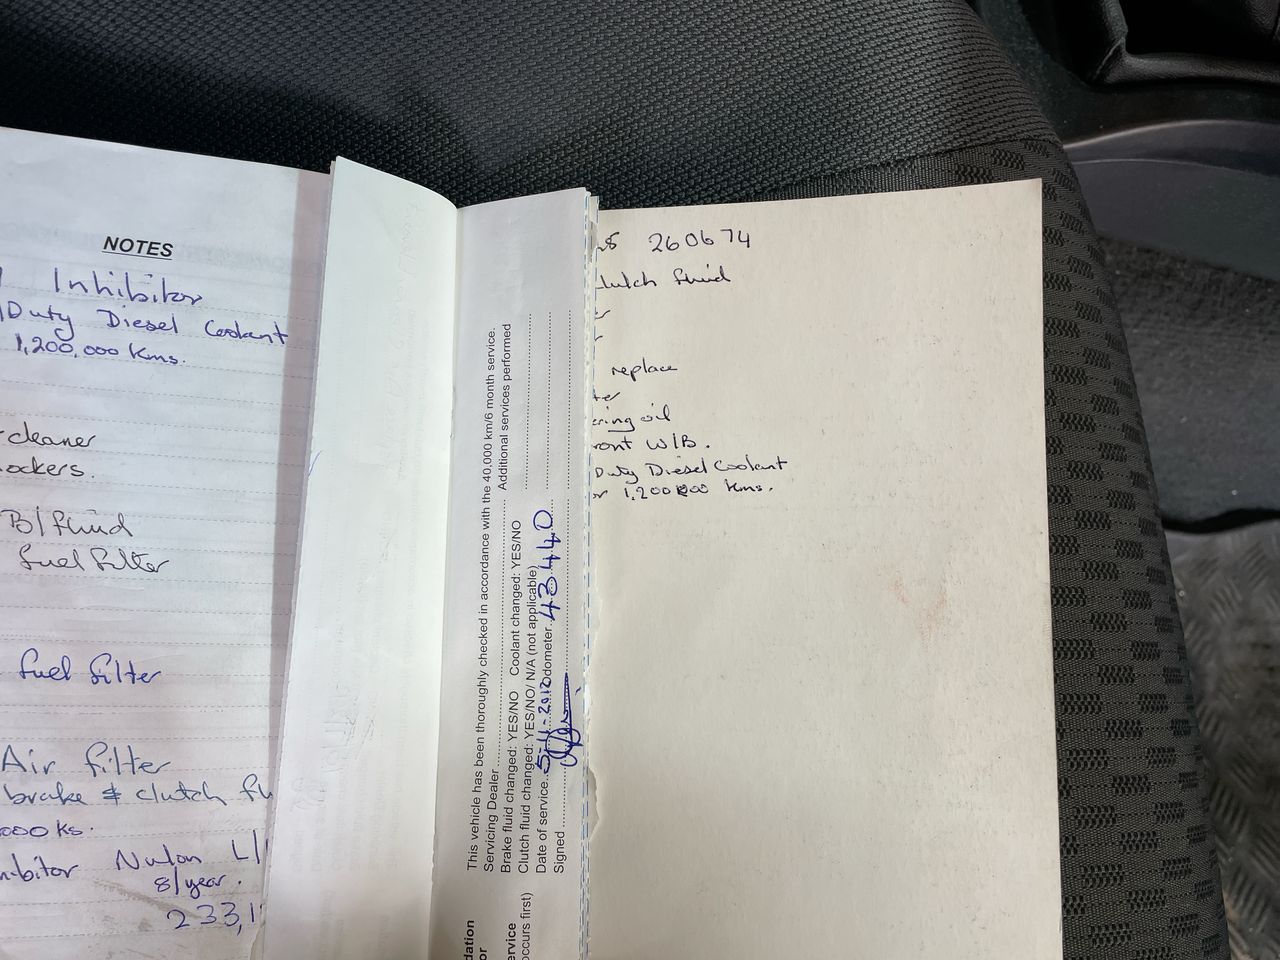 NOTES
Inhibitor
Duty Diesel Coolant
1,200,000 Kms.
cleaner
ockers.
B/fluid
fuel filter
fuel filter
Air filter
brake & clutch flu
000 ks.
nibitor Nulon L/
8/year.
233,1
This vehicle has been thoroughly checked in accordance with the 40,000 km/6 month service.
Servicing Dealer .......... Additional services performed
Brake fluid changed: YES/NO Coolant changed: YES/NO
Clutch fluid changed: YES/NO/ N/A (not applicable)
Date of service. 5-11-2012 Odometer. 43440
Signed
dation
or
ervice
occurs first)
260674
lutch fluid
replace
ter
ering oil
ront W/B.
Duty Diesel Coolant
or 1,200000 kms.